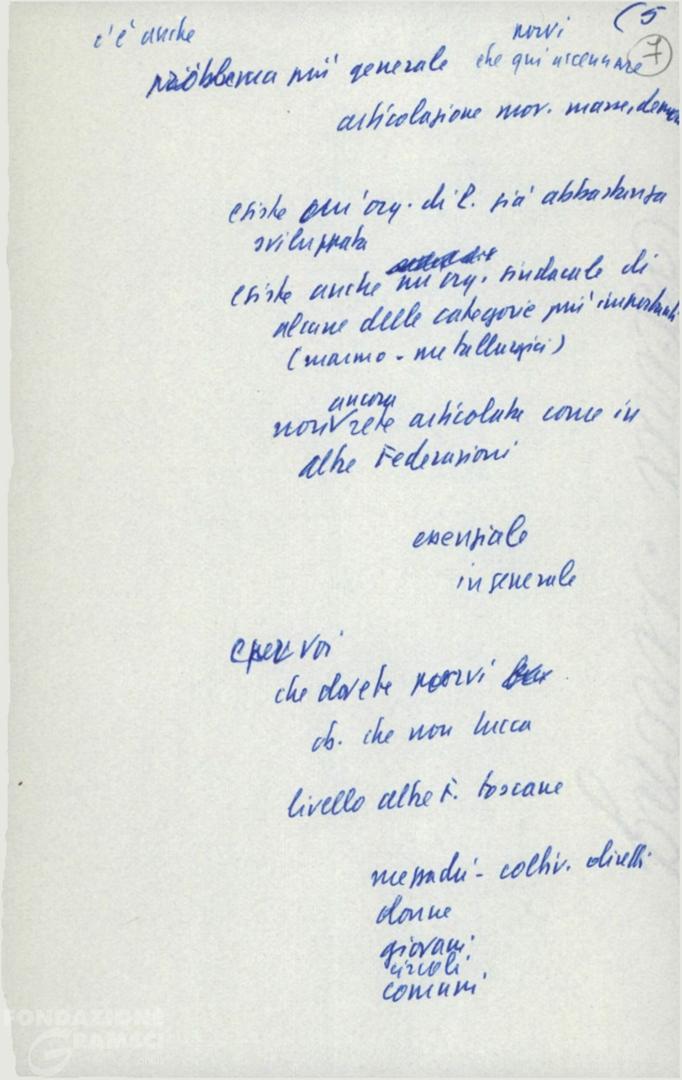 (5
7
c'è anche porvi
problema più generale che qui accennare
articolazione mov. massa, democ
esiste un'org. di P. già abbastanza
sviluppata
esiste anche un'org. sindacale di
alcune delle categorie più importanti
(marmo - metallurgici)
ancora
non rete articolata come in
altre Federazioni
essenziale
in generale
e per voi
che dovete porvi
ob. che non tocca
livello altre F. toscane
mezzadri - coltiv. diretti
donne
giovani
circoli
comuni
FONDAZIONE
GRAMSCI